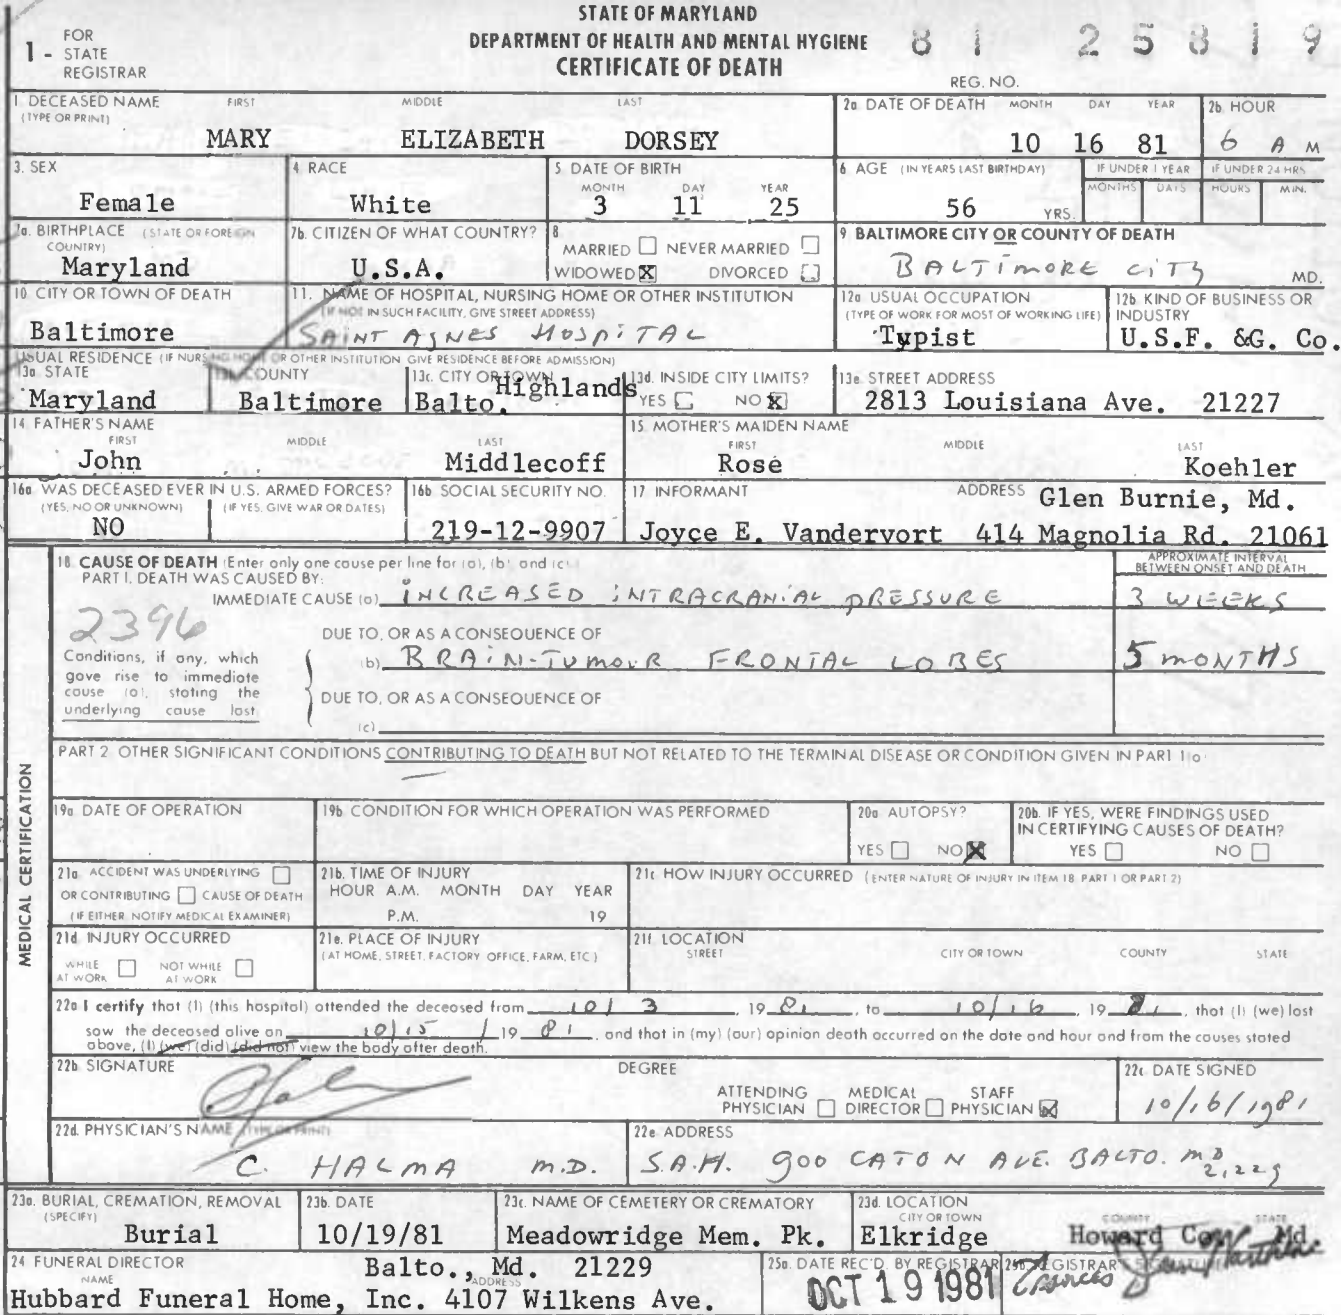 STATE OF MARYLAND
DEPARTMENT OF HEALTH AND MENTAL HYGIENE
CERTIFICATE OF DEATH
1 - FOR STATE REGISTRAR
81 25819
REG. NO.
1. DECEASED NAME FIRST MIDDLE LAST
(TYPE OR PRINT)
MARY ELIZABETH DORSEY
2a DATE OF DEATH MONTH DAY YEAR
10 16 81
2b. HOUR
6 A M
3. SEX
Female
4. RACE
White
5. DATE OF BIRTH
MONTH DAY YEAR
3 11 25
6. AGE (IN YEARS LAST BIRTHDAY)
56 YRS.
IF UNDER 1 YEAR
MONTHS DAYS
IF UNDER 24 HRS
HOURS MIN.
7a. BIRTHPLACE (STATE OR FOREIGN COUNTRY)
Maryland
7b. CITIZEN OF WHAT COUNTRY?
U.S.A.
8.
MARRIED NEVER MARRIED
WIDOWED X DIVORCED
9. BALTIMORE CITY OR COUNTY OF DEATH
BALTIMORE CITY MD.
10. CITY OR TOWN OF DEATH
Baltimore
11. NAME OF HOSPITAL, NURSING HOME OR OTHER INSTITUTION
(IF NOT IN SUCH FACILITY, GIVE STREET ADDRESS)
SAINT AGNES HOSPITAL
12a USUAL OCCUPATION
(TYPE OF WORK FOR MOST OF WORKING LIFE)
Typist
12b. KIND OF BUSINESS OR INDUSTRY
U.S.F. &G. Co.
USUAL RESIDENCE (IF NURSING HOME OR OTHER INSTITUTION GIVE RESIDENCE BEFORE ADMISSION)
13a. STATE
Maryland
COUNTY
Baltimore
13c. CITY OR TOWN
Balto. Highlands
13d. INSIDE CITY LIMITS?
YES NO X
13e. STREET ADDRESS
2813 Louisiana Ave. 21227
14. FATHER'S NAME
FIRST MIDDLE LAST
John Middlecoff
15. MOTHER'S MAIDEN NAME
FIRST MIDDLE LAST
Rose Koehler
16a WAS DECEASED EVER IN U.S. ARMED FORCES?
(YES, NO OR UNKNOWN) (IF YES, GIVE WAR OR DATES)
NO
16b SOCIAL SECURITY NO.
219-12-9907
17 INFORMANT ADDRESS Glen Burnie, Md.
Joyce E. Vandervort 414 Magnolia Rd. 21061
MEDICAL CERTIFICATION
18. CAUSE OF DEATH (Enter only one cause per line for (a), (b) and (c))
APPROXIMATE INTERVAL BETWEEN ONSET AND DEATH
PART I. DEATH WAS CAUSED BY:
IMMEDIATE CAUSE (a) INCREASED INTRACRANIAL PRESSURE 3 WEEKS
2396
DUE TO, OR AS A CONSEQUENCE OF
(b) BRAIN-TUMOUR FRONTAL LOBES 5 MONTHS
Conditions, if any, which
gave rise to immediate
cause (a), stating the
underlying cause last
DUE TO, OR AS A CONSEQUENCE OF
(c)
PART 2. OTHER SIGNIFICANT CONDITIONS CONTRIBUTING TO DEATH BUT NOT RELATED TO THE TERMINAL DISEASE OR CONDITION GIVEN IN PART 1(a)
19a DATE OF OPERATION
19b. CONDITION FOR WHICH OPERATION WAS PERFORMED
20a AUTOPSY?
YES NO X
20b. IF YES, WERE FINDINGS USED IN CERTIFYING CAUSES OF DEATH?
YES NO
21a. ACCIDENT WAS UNDERLYING
OR CONTRIBUTING CAUSE OF DEATH
(IF EITHER NOTIFY MEDICAL EXAMINER)
21b. TIME OF INJURY
HOUR A.M. MONTH DAY YEAR
P.M. 19
21c. HOW INJURY OCCURRED (ENTER NATURE OF INJURY IN ITEM 18 PART 1 OR PART 2)
21d. INJURY OCCURRED
WHILE AT WORK NOT WHILE AT WORK
21e. PLACE OF INJURY
(AT HOME, STREET, FACTORY OFFICE, FARM, ETC.)
21f. LOCATION
STREET CITY OR TOWN COUNTY STATE
22a I certify that (I) (this hospital) attended the deceased from 10/3 1981, to 10/16 1981, that (I) (we) last
saw the deceased alive on 10/15/1981, and that in (my) (our) opinion death occurred on the date and hour and from the causes stated
above, (I) (we) (did) (did not) view the body after death.
22b. SIGNATURE DEGREE
ATTENDING PHYSICIAN MEDICAL DIRECTOR STAFF PHYSICIAN X
22c. DATE SIGNED
10/16/1981
22d. PHYSICIAN'S NAME (TYPE OR PRINT)
C. HALMA M.D.
22e ADDRESS
S.A.H. 900 CATON AVE. BALTO. MD 21229
23a. BURIAL, CREMATION, REMOVAL (SPECIFY)
Burial
23b. DATE
10/19/81
23c. NAME OF CEMETERY OR CREMATORY
Meadowridge Mem. Pk.
23d. LOCATION
CITY OR TOWN COUNTY STATE
Elkridge Howard Co. Md.
24 FUNERAL DIRECTOR
NAME ADDRESS
Balto., Md. 21229
Hubbard Funeral Home, Inc. 4107 Wilkens Ave.
25a. DATE REC'D. BY REGISTRAR
OCT 19 1981
25b. REGISTRAR'S SIGNATURE
Frances